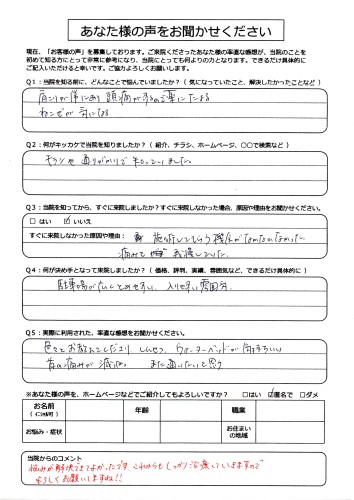 あなた様の声をお聞かせください
現在、「お客様の声」を募集しております。ご来院くださったあなた様の率直な感想が、当院のことを
初めて知る方にとって非常に参考になり、当院にとっても何よりの力となります。できるだけ具体的に
ご記入いただけると幸いです。ご協力よろしくお願いします。
Q1：当院を知る前に、どんなことで悩んでいましたか？（ 気になっていたこと、解決したかったことなど ）
肩こりが常にあり 頭痛がするので薬にたよる
ねこぜが 気になる
Q2：何がキッカケで当院を知りましたか？（ 紹介、チラシ、ホームページ、〇〇で検索など ）
チラシや通りがかりで 知っていました。
Q3：当院を知ってから、すぐに来院しましたか？すぐに来院しなかった場合、原因や理由をお聞かせください。
□ はい ☑ いいえ
すぐに来院しなかった原因や理由： 施術してもらう機会がなかなかなかった
痛みを 我慢していた。
Q4：何が決め手となって来院しましたか？（ 価格、評判、実績、雰囲気など、できるだけ具体的に ）
駐車場が広くとめやすい、入りやすい雰囲気
Q5：実際に利用された、率直な感想をお聞かせください。
色々とお教えくださり しんせつ ウォーターベッドが
首の痛みが 減った。 また通いたいと思う
※あなた様の声を、ホームページなどでご紹介してもよろしいですか？ □はい ☑匿名で □ダメ
お名前
（ ｲﾆｼｬﾙ可 ）
年齢
職業
お悩み・症状
お住まい
の地域
当院からのコメント
痛みが解決できてよかったです これからもしっかり治療していきますので
よろしくお願いしますね!!